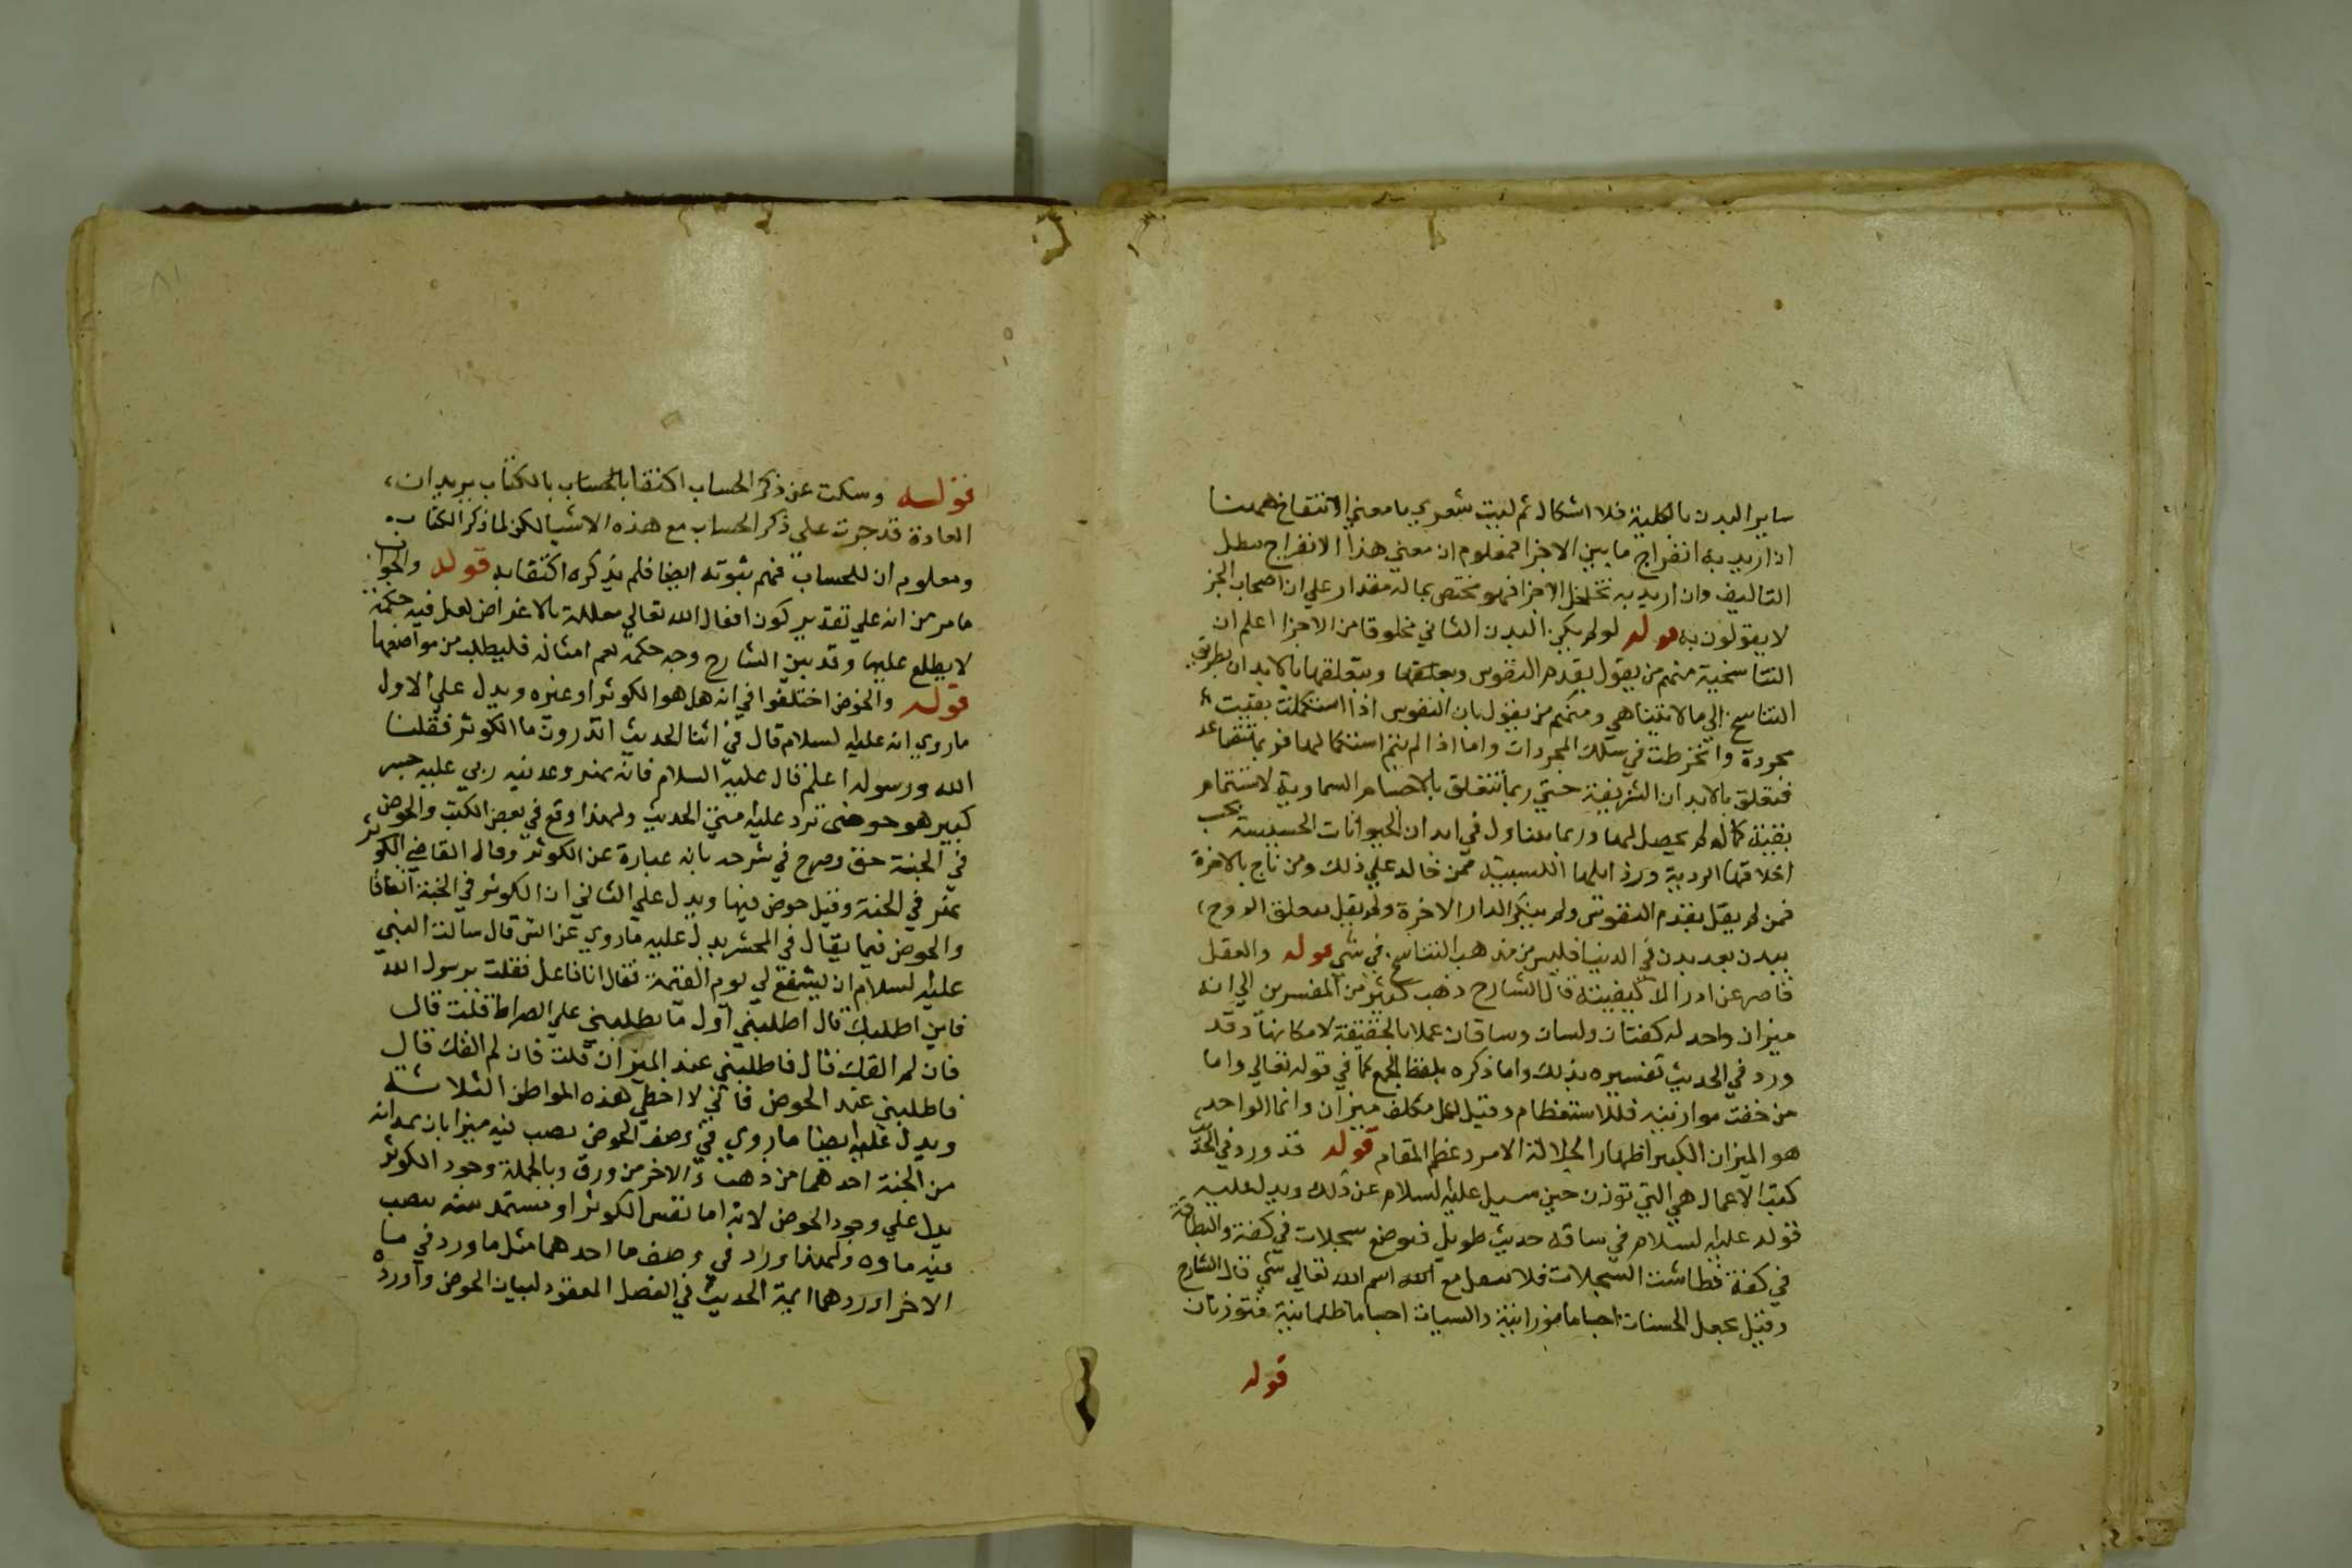 ساير البدن بالكلية فلا اشكال ثم ليت شعري ما معني الانتفاخ همنا
ان اريد به انفراج ما بين الاجزا فمعلوم ان معني هذا الانفراج يبطل
التاليف وان اريد به تخلخل الاجزا فهو مختص بماله مقدار علي ان اصحاب الجز
لا يقولون به قوله لو لم يكن البدن الثاني مخلوقا من الاجزا اعلم ان
التناسخية منهم من يقول بقدم النفوس وتعلقها بالابدان بطريق
التناسخ الي ما لا يتناهي ومنهم من يقول بان النفوس اذا استكملت بقيت
مجردة وانخرطت في سلك المجردات واما اذا لم يتم استكمالها فربما تتصاعد
فتعلق بالابدان الشريفة حتي ربما تتعلق بالاجسام السماوية لاستتمام
بقية كمال لم يحصل لها وربما في ابدان الحيوانات الخسيسة بحسب
اخلاقها الردية ممن خالد علي ذلك ومن ناج بالاخرة
فمن لم يقل بقدم النفوس ولم ينكر الدار الاخرة ولم يقل بتعلق الروح
ببدن بعد بدن في الدنيا فليس من مذهب التناسخ في شي قوله والعقل
قاصر عن ادراك كيفيته قال الشارح ذهب كثير من المفسرين الي انه
ميزان واحد له كفتان ولسان وساقان عملا بالحقيقة لامكانها وقد
ورد في الحديث تفسيره بذلك واما ذكره بلفظ الجمع كما في قوله تعالي واما
من خفت موازينه فللاستعظام وقيل لكل مكلف ميزان وانما الواحد
هو الميزان الكبير اظهارا لجلالة الامر وعظم المقام قوله قد ورد في الحديث
كتب الاعمال هي التي توزن حين سيل عليه السلام عن ذلك ويدل عليه
قوله عليه السلام في ساقه حديث طويل فتوضع سجلات في كفة والبطاقة
في كفة فطاشت السجلات فلا يثقل مع اسم الله تعالي شي قال الشارح
وقيل تجعل الحسنات اجساما نورانية والسيات اجساما ظلمانية فتوزنان
قوله
قوله وسكت عن ذكر الحساب اكتفا بالكتاب يريد ان
العادة قد جرت علي ذكر الحساب مع هذه الاشيا لكن لما ذكر الكتاب
ومعلوم ان للحساب فهم ثبوته ايضا فلم يذكره اكتفا به قوله والجواب
ما مر من انه علي تقدير كون افعال الله تعالي معللة بالاغراض لعل فيه حكمة
لا يطلع عليها وقد بين الشارح وجه حكمة لعم امثاله فليطلب من مواضعها
قوله والحوض اختلفوا في انه هل هو الكوثر او غيره ويدل علي الاول
ما روي انه عليه السلام قال في اثنا الحديث اتدرون ما الكوثر فقلنا
الله ورسوله اعلم قال عليه السلام فانه نهر وعدنيه ربي عليه خير
كثير هو حوضي ترد عليه متي الحديث ولهذا وقع في بعض الكتب والحوض
في الجنة حق وصرح في شرحه بانه عبارة عن الكوثر وقال القاضي الكوثر
نهر في الجنة وقيل حوض فيها ويدل علي الثاني ان الكوثر في الجنة اتفاقا
والحوض فيما يقال في المحشر يدل عليه ما روي عن انس قال سالت النبي
عليه السلام ان يشفع لي يوم القيمة فقال انا فاعل فقلت يرسول الله
فاين اطلبك قال اطلبني اول ما تطلبني علي الصراط قلت قال
فان لم القك قال فاطلبني عند الميزان قلت فان لم القك قال
فاطلبني عند الحوض فاني لا اخطي هذه المواطن الثلاثة
ويدل عليه ايضا ما روي في وصف الحوض يصب فيه ميزابان يمدانه
من الجنة احدهما من ذهب والاخر من ورق وبالجملة وجود الكوثر
يدل علي وجود الحوض لانه اما نفس الكوثر او مستمد منه يصب
فيه ماوه ولهذا وراد في وصف ما احدهما مثل ما ورد في ما
الاخر اوردهما ايمة الحديث في الفصل المعقود لبيان الحوض واورده